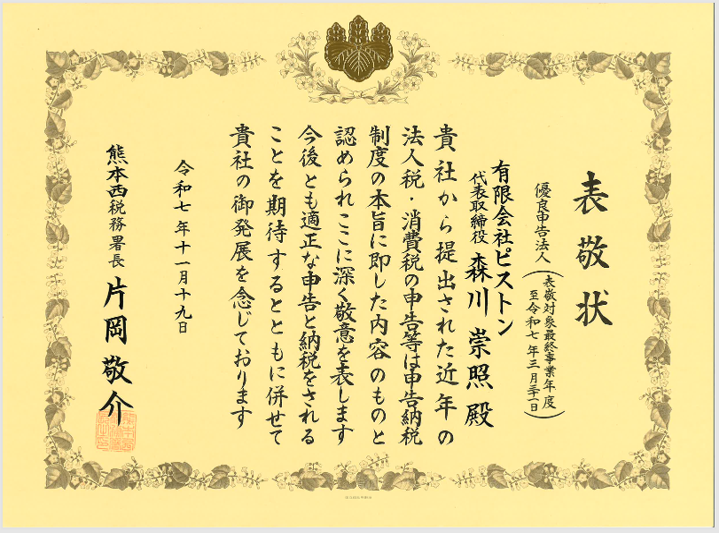 表敬状
優良申告法人(表敬対象最終事業年度 至令和七年三月三十一日)
有限会社ピストン
代表取締役 森川崇照殿
貴社から提出された近年の
法人税・消費税の申告等は申告納税
制度の本旨に即した内容のものと
認められここに深く敬意を表します
今後とも適正な申告と納税をされる
ことを期待するとともに併せて
貴社の御発展を念じております
令和七年十一月十九日
熊本西税務署長 片岡敬介